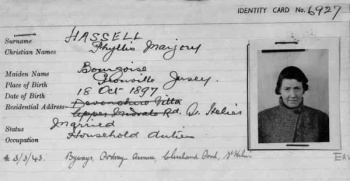 IDENTITY CARD No. 6927
Surname HASSELL
Christian Names Phyllis Marjory
Maiden Name Bourgoise
Place of Birth Jersey.
Date of Birth 18 Oct 1897
Residential Address Devonshire Villa
Upper Midvale Rd. St. Helier
Status Married
Occupation Household duties
3/3/43. Byways, Avenue, Cleveland Road, St Helier